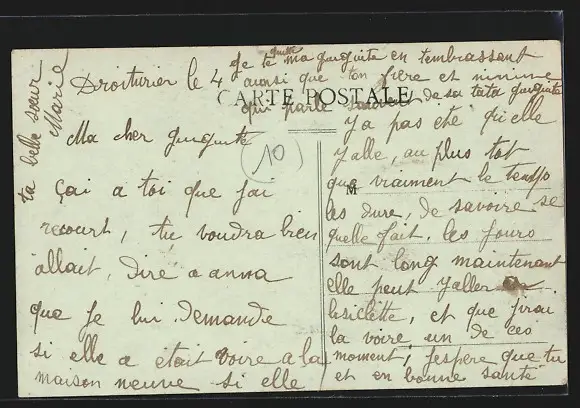 Droiturier le 4
CARTE POSTALE
Ma cher guiguite
(10)
Çai a toi que jai
recourt, tu voudra bien
allait, dire a anna
que je lui demande
si elle a était voire a la
maison neuve si elle
y a pas été qu'elle
y alle, au plus tot
que vraiment le temps
les dure, de savoire se
quelle fait, les jours
sont long maintenant
elle peut y aller
besiclette, et que jirai
la voire un de ces
moment, jespère que tu
et en bonne santé
Je te quitte ma guiguite en tembrassent
ainsi que ton frère et ninine
qui parle de sa tata guiguite
ta belle sœur
Marie
M